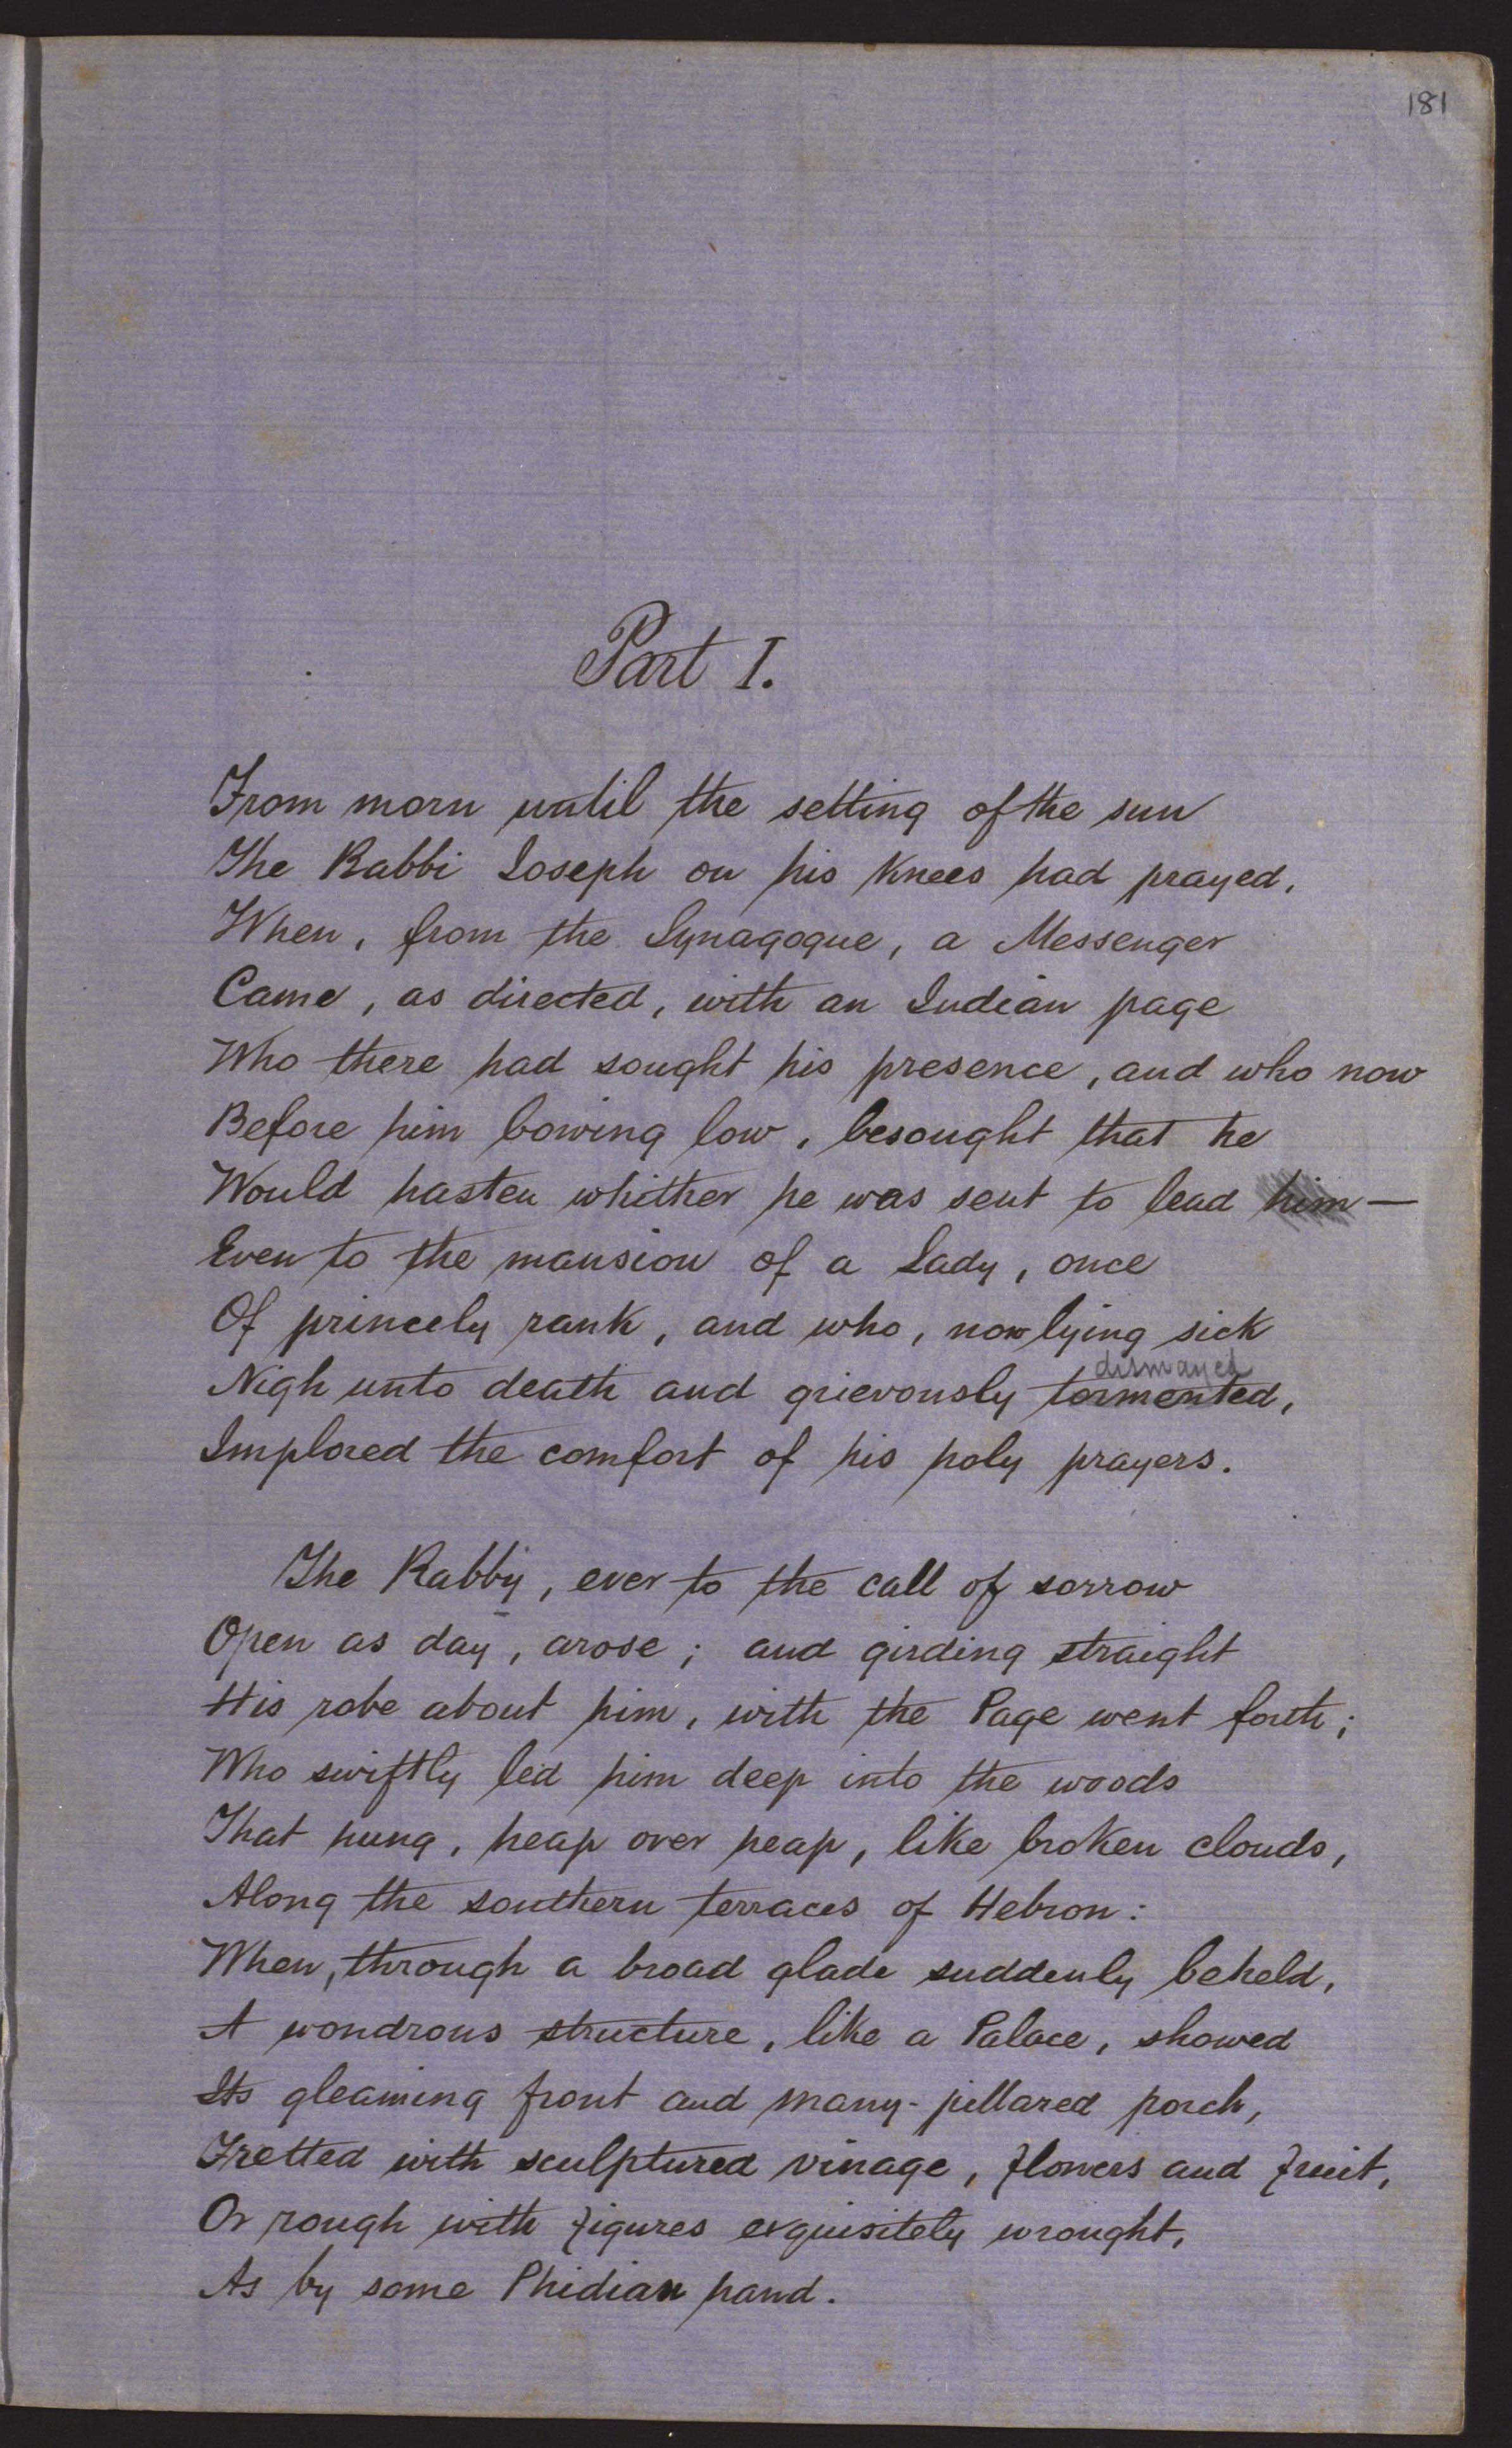 181
Part I.
From morn until the setting of the sun
The Rabbi Joseph on his Knees had prayed,
When, from the Synagogue, a Messenger
Came, as directed, with an Indian page
Who there had sought his presence, and who now
Before him bowing low, besought that he
Would hasten whither he was sent to lead him —
Even to the mansion of a Lady, once
Of princely rank, and who, now lying sick
dismayed
Nigh unto death and grievously tormented,
Implored the comfort of his holy prayers.
The Rabbi, ever to the call of sorrow
Open as day, arose; and girding straight
His robe about him, with the Page went forth;
Who swiftly led him deep into the woods
That hung, heap over heap, like broken clouds,
Along the southern terraces of Hebron:
When, through a broad glade suddenly beheld,
A wondrous structure, like a Palace, showed
Its gleaming front and many-pillared porch,
Fretted with sculptured vinage, flowers and fruit,
Or rough with figures exquisitely wrought,
As by some Phidian hand.